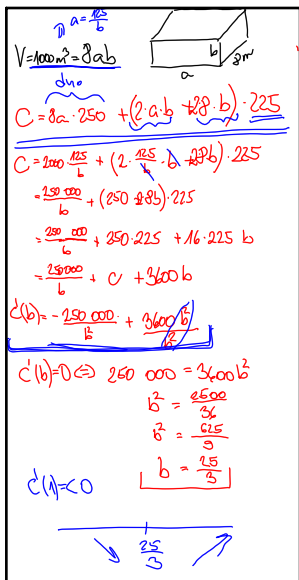 ⇒ a = 125/b
V = 1000 m³ = 8ab
b
8m
a
dno
C = 8a · 250 + (2·a·b + 2·8·b) · 225
C = 2000 · 125/b + (2 · 125/b · b + 2·8b) · 225
= 250 000/b + (250 + 2·8b) · 225
= 250 000/b + 250·225 + 16·225 b
= 250000/b + C + 3600b
C'(b) = - 250 000/b² + 3600 b²/b²
C'(b) = 0 ⇔ 250 000 = 3600b²
b² = 2500/36
b² = 625/9
b = 25/3
C'(1) = < 0
25/3